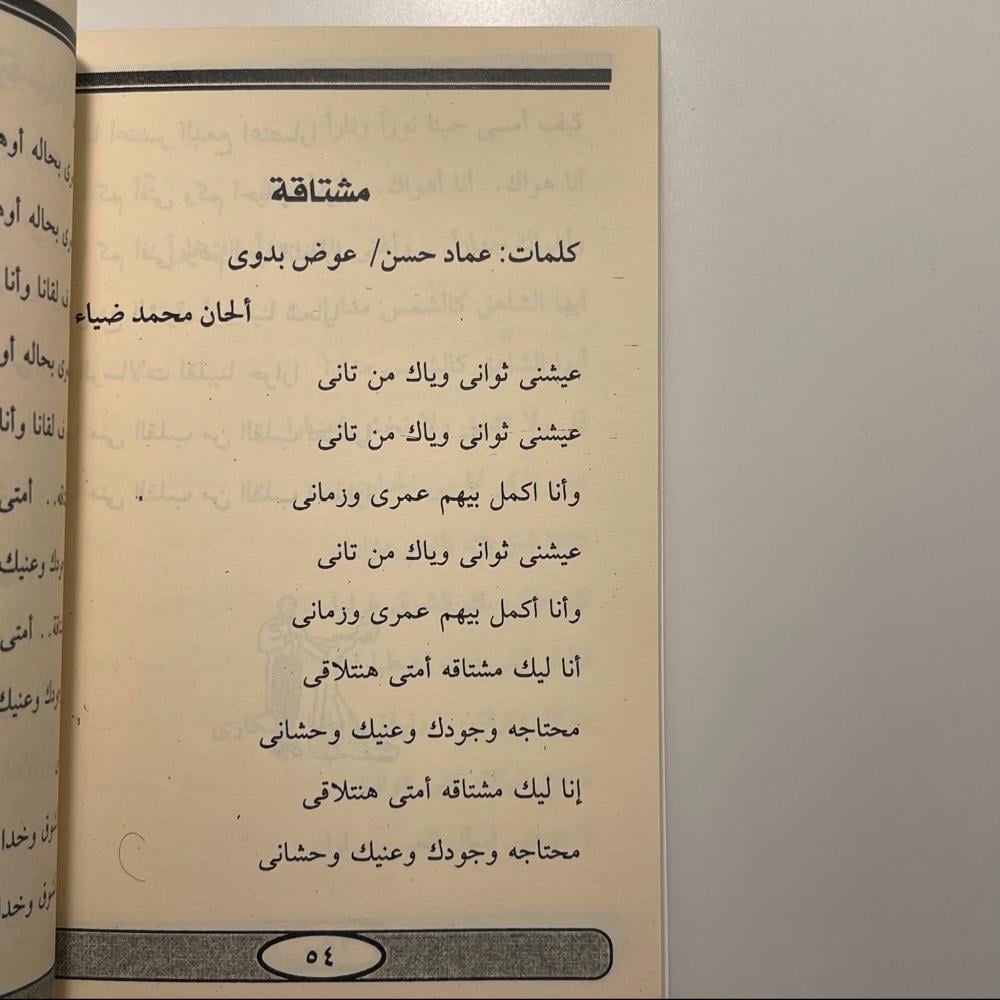 مشتاقة
كلمات: عماد حسن/ عوض بدوى
ألحان محمد ضياء
عيشنى ثوانى وياك من تانى
عيشنى ثوانى وياك من تانى
وأنا اكمل بيهم عمرى وزمانى
عيشنى ثوانى وياك من تانى
وأنا أكمل بيهم عمرى وزمانى
أنا ليك مشتاقه أمتى هنتلاقى
محتاجه وجودك وعنيك وحشانى
إنا ليك مشتاقه أمتى هنتلاقى
محتاجه وجودك وعنيك وحشانى
٥٤
بحاله
بحاله
لقانا وأنا
بحاله
لقانا وأنا
أمتى
وعنيك
أمتى
وعنيك
وخدا
وخدا